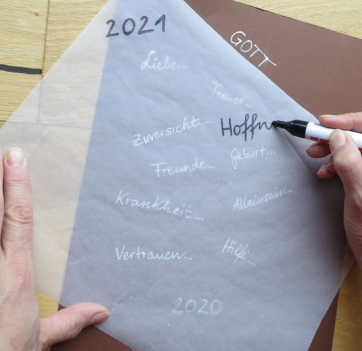 2021
GOTT
Liebe...
Trauer...
Zuversicht...
Hoffn
Freunde...
Geburt...
Krankheit...
Alleinsein...
Vertrauen...
Hilfe...
2020